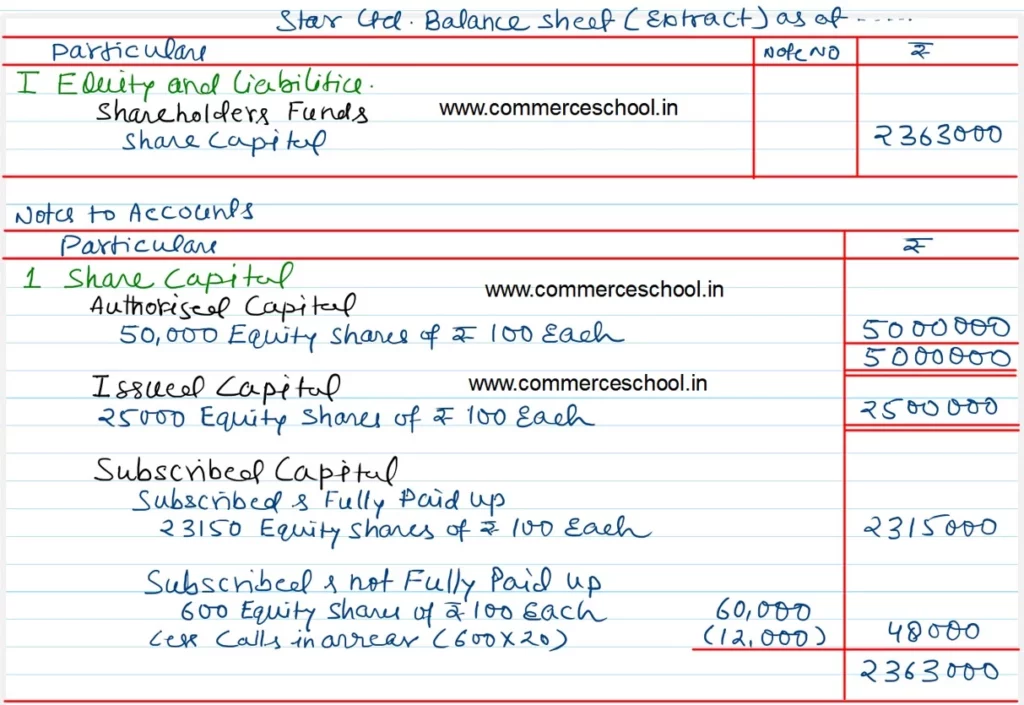 Star Ltd. Balance sheet (Extract) as at -----
Particulars Note NO ₹
I Equity and Liabilities.
Shareholders Funds www.commerceschool.in
Share Capital 2363000
Notes to Accounts
Particulars ₹
1 Share Capital
Authorised Capital www.commerceschool.in
50,000 Equity Shares of ₹ 100 Each 5000000
5000000
Issued Capital www.commerceschool.in
25000 Equity Shares of ₹ 100 Each 2500000
Subscribed Capital
Subscribed & Fully Paid up
23150 Equity Shares of ₹ 100 Each 2315000
Subscribed & not Fully Paid up
600 Equity Shares of ₹ 100 Each 60,000
Less Calls in arrear (600X20) (12,000) 48000
2363000